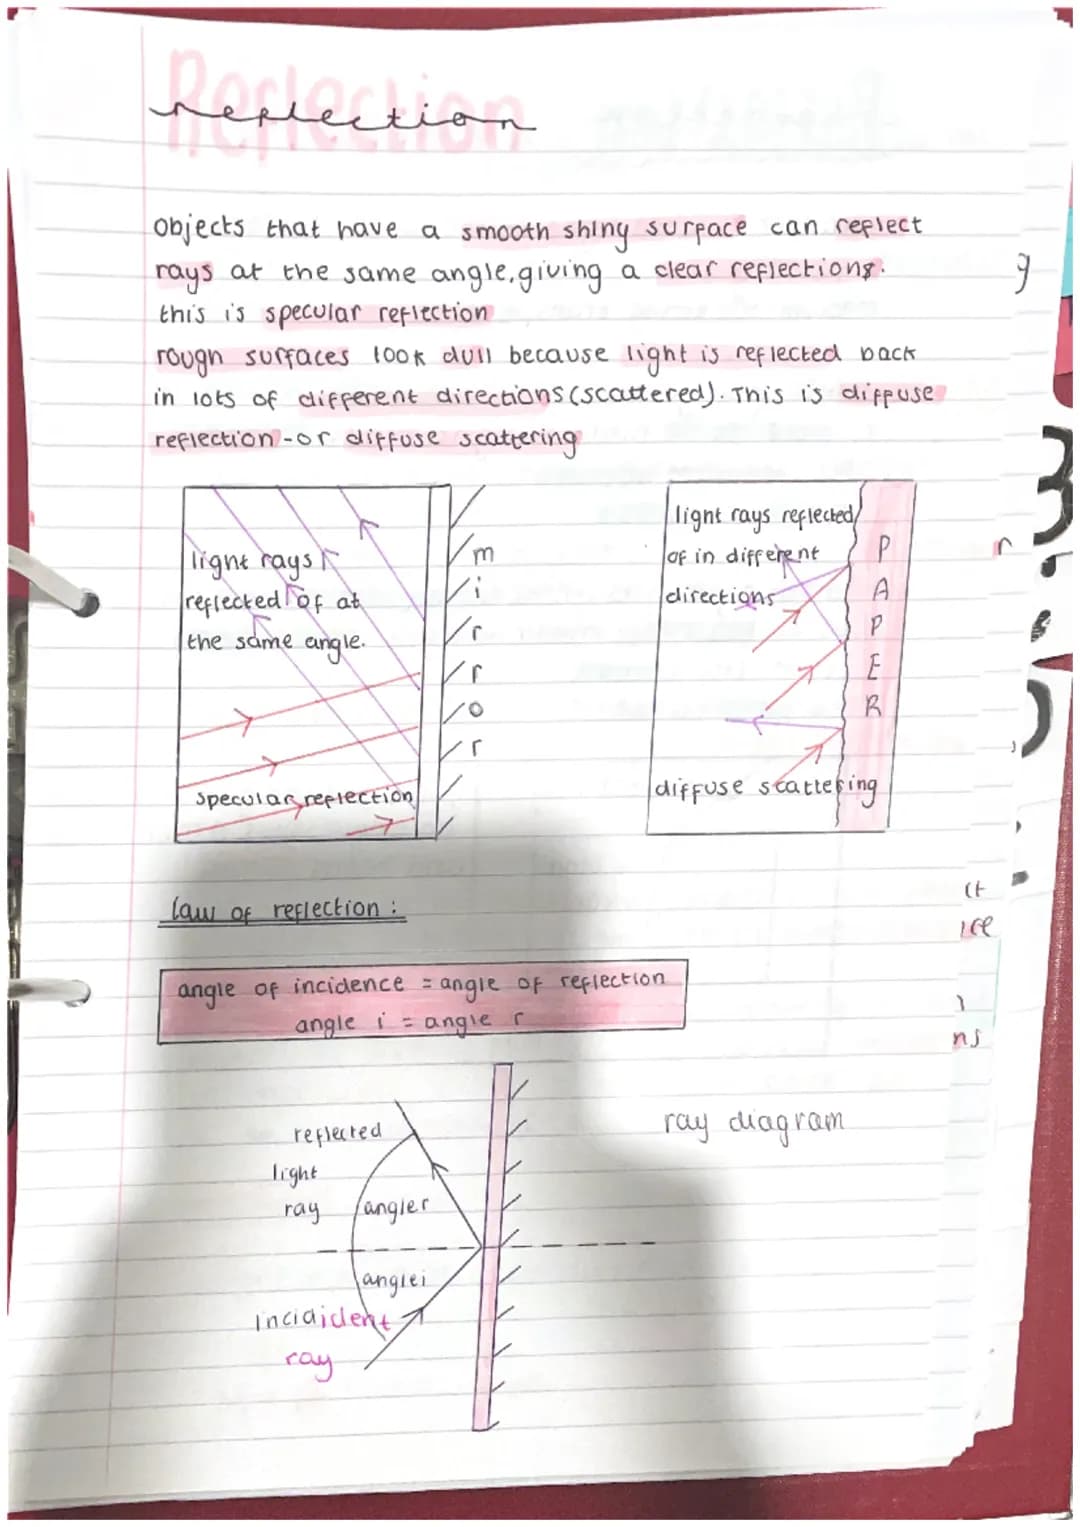 Reflection
reflection
objects that have a smooth shiny surface can reflect
rays at the same angle, giving a clear reflections.
this is specular reflection
rough surfaces look dull because light is reflected back
in lots of different directions (scattered). This is diffuse
reflection - or diffuse scattering
light rays
reflected of at
the same angle.
specular reflection
mirror
light rays reflected
of in different
directions
diffuse scattering
PAPER
law of reflection:
angle of incidence = angle of reflection
angle i = angle r
ray diagram
reflected
light
ray
angle r
angle i
inciaident
ray
g
r
ct
ice
ns